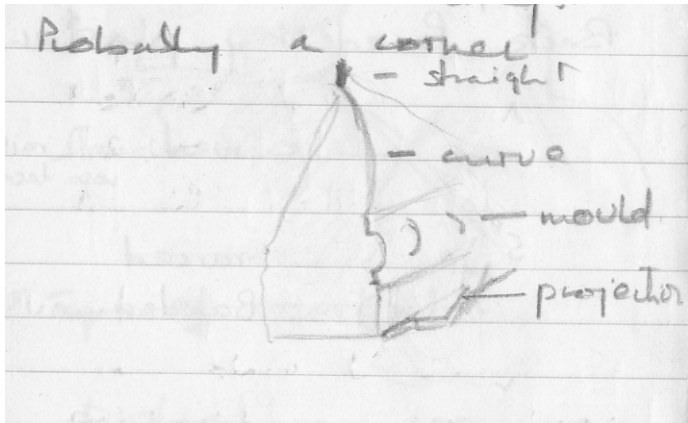 Probally a corner
- straight
- curve
- mould
- projection